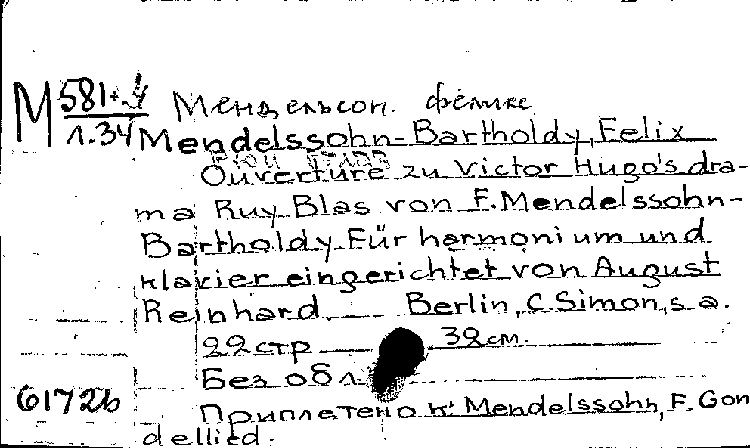 М 581+
1.34
Мендельсон. феликс
Mendelssohn-Bartholdy, Felix
Ouverture zu Victor Hugo's dra-
ma Ruy Blas von F. Mendelssohn-
Bartholdy. Für harmonium und
klavier eingerichtet von August
Reinhard Berlin, C. Simon, s.a.
22 стр 32 см.
Без обл
6172b
Приплетено к: Mendelssohn, F. Gon
dellied.